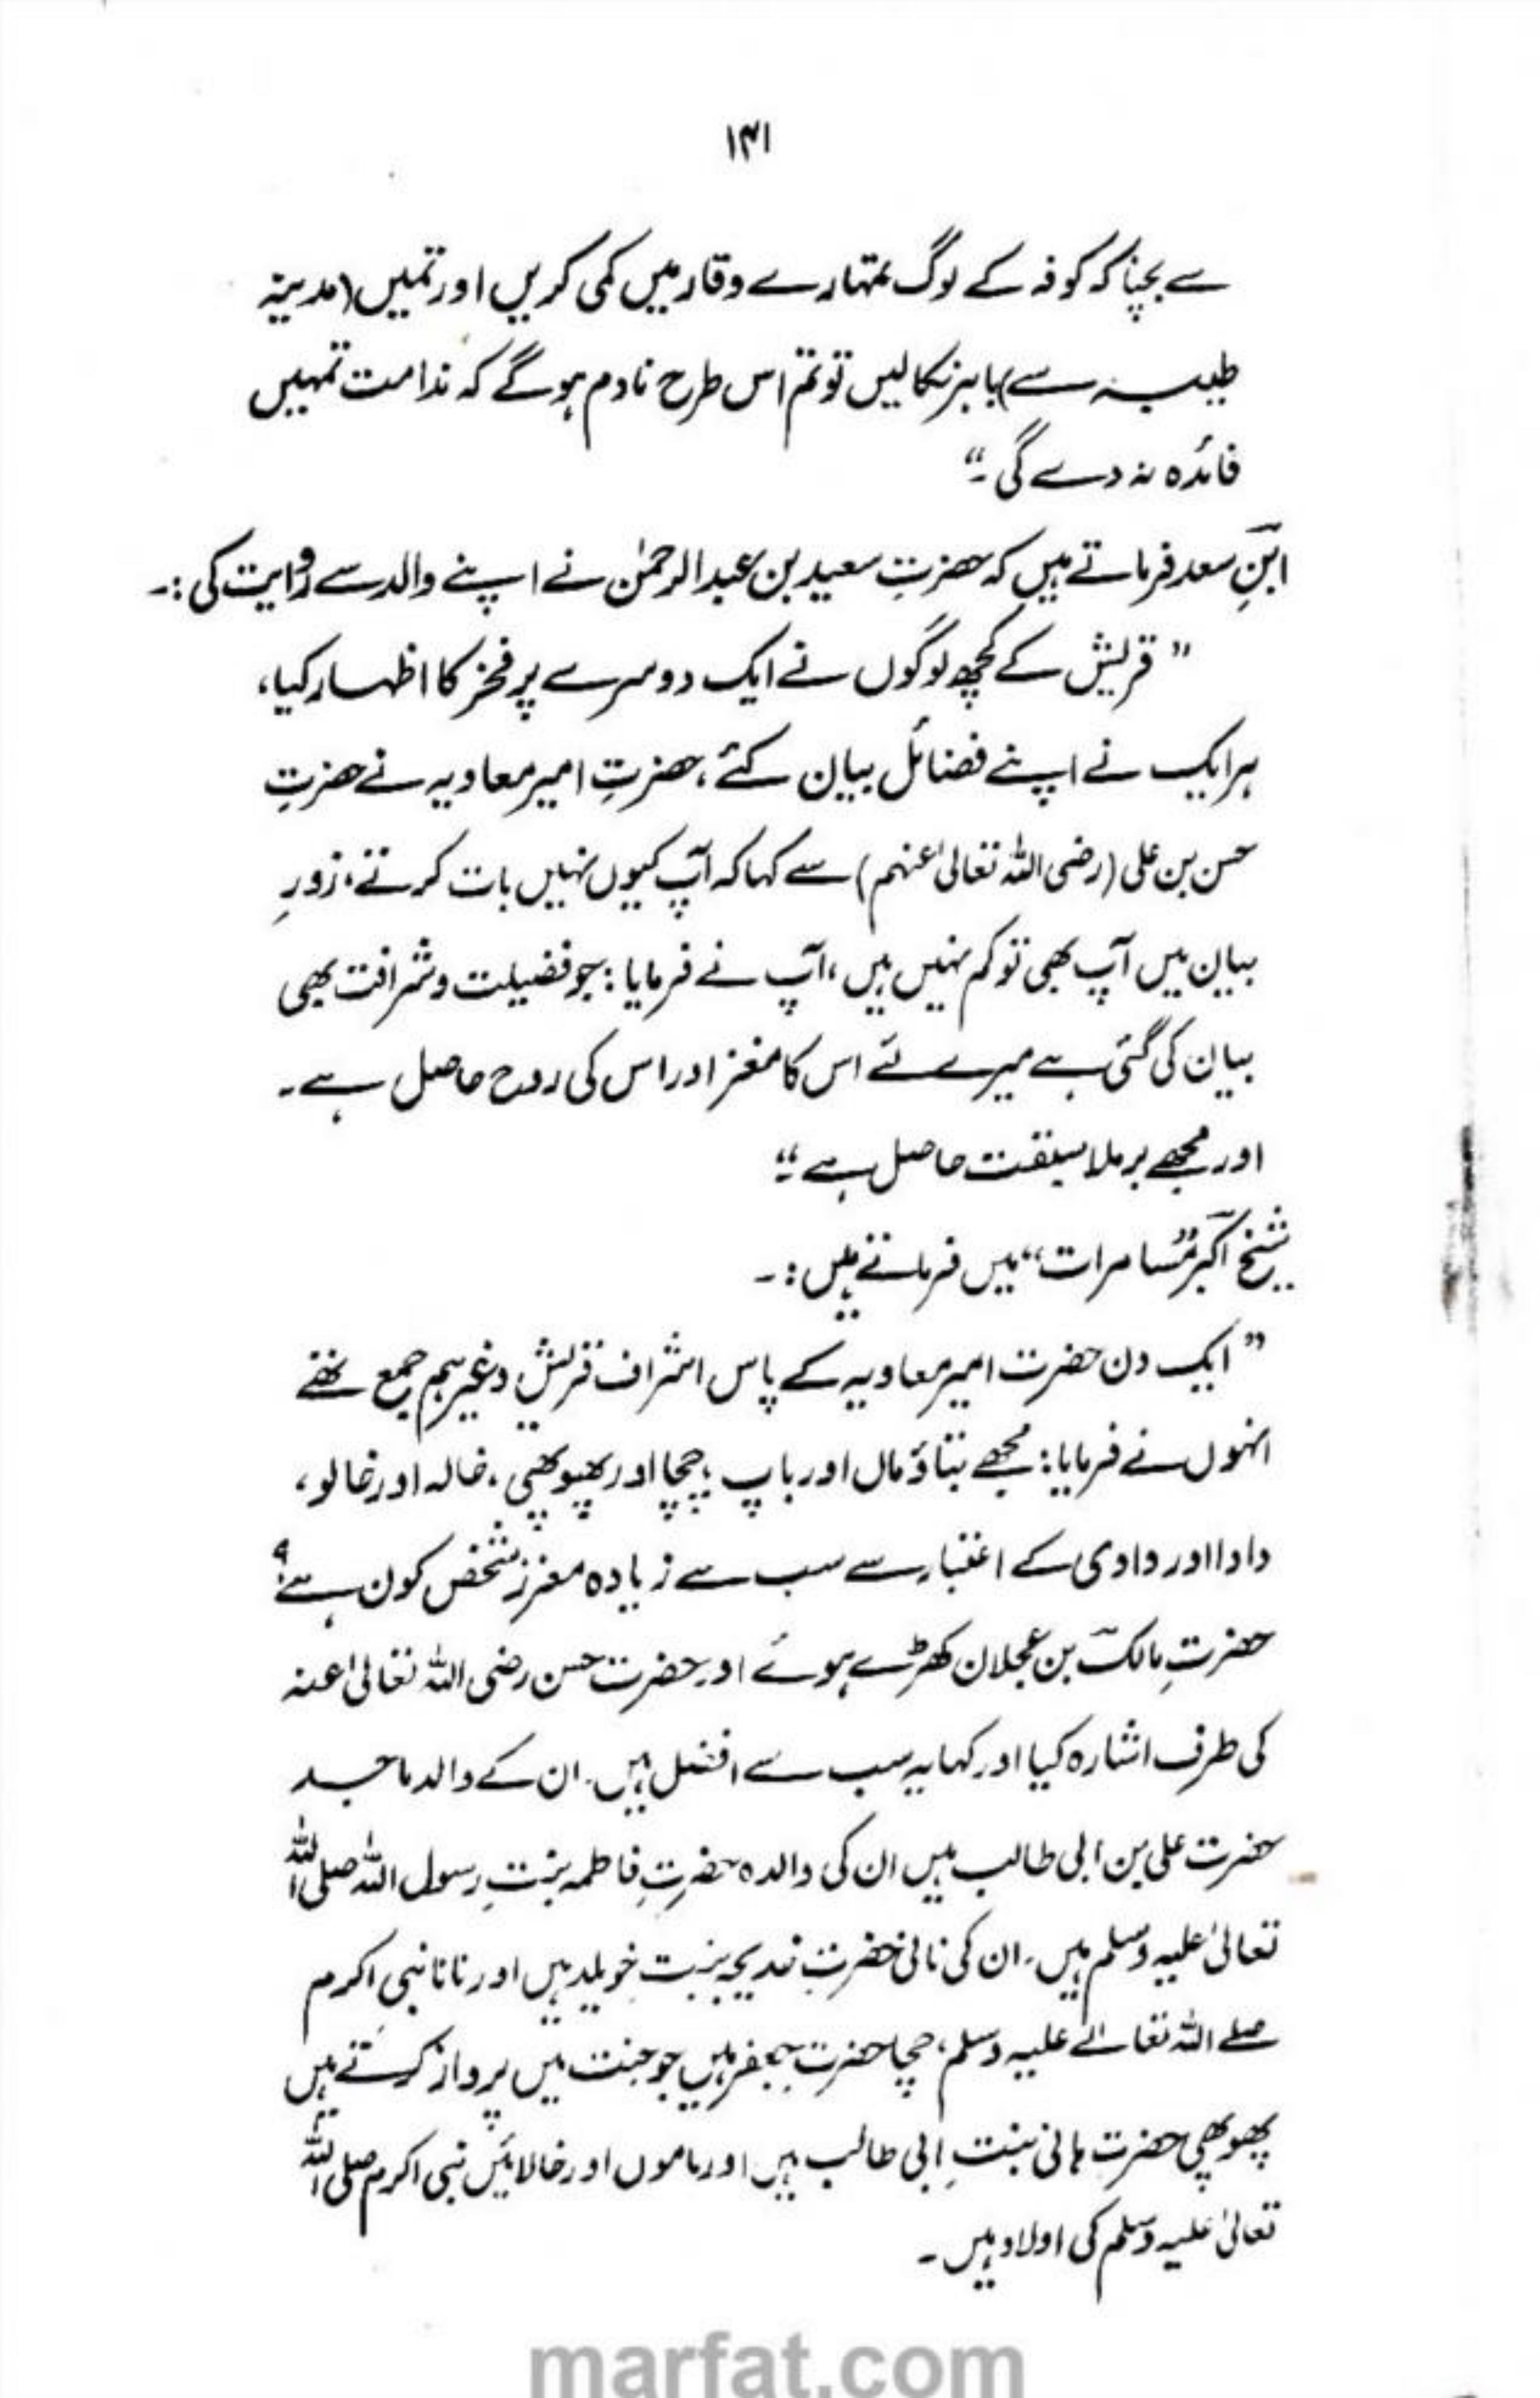 ۱۳۱
سے بچنا کہ کوفہ کے لوگ تمہارے وقار میں کمی کریں اور تمہیں (مدینہ
طیبہ سے) باہر نکالیں تو تم اس طرح نادم ہو گے کہ ندامت تمہیں
فائدہ نہ دے گی۔“
ابنِ سعد فرماتے ہیں کہ حضرتِ سعید بن عبدالرحمٰن نے اپنے والد سے روایت کی :۔
” قریش کے کچھ لوگوں نے ایک دوسرے پر فخر کا اظہار کیا،
ہر ایک نے اپنے فضائل بیان کئے، حضرتِ امیر معاویہ نے حضرتِ
حسن بن علی (رضی اللہ تعالیٰ عنہم) سے کہا کہ آپ کیوں نہیں بات کرتے، زورِ
بیان میں آپ بھی تو کم نہیں ہیں، آپ نے فرمایا : جو فضیلت و شرافت بھی
بیان کی گئی ہے میرے لئے اس کا مغز اور اس کی روح حاصل ہے۔
اور مجھے برملا سبقت حاصل ہے“
شیخ اکبر ”مسامرات“ میں فرماتے ہیں :۔
” ایک دن حضرت امیر معاویہ کے پاس اشراف قریش وغیرہم جمع تھے
انہوں نے فرمایا : مجھے بتاؤ ماں اور باپ، چچا اور پھوپھی، خالہ اور خالو،
دادا اور دادی کے اعتبار سے سب سے زیادہ معزز شخص کون ہے؟
حضرتِ مالک بن عجلان کھڑے ہوئے اور حضرت حسن رضی اللہ تعالیٰ عنہ
کی طرف اشارہ کیا اور کہا یہ سب سے افضل ہیں۔ ان کے والد ماجد
حضرت علی بن ابی طالب ہیں ان کی والدہ حضرتِ فاطمہ بنتِ رسول اللہ صلی اللہ
تعالیٰ علیہ وسلم ہیں۔ ان کی نانی حضرتِ خدیجہ بنت خویلد ہیں اور نانا نبی اکرم
صلے اللہ تعالےٰ علیہ وسلم، چچا حضرتِ جعفر ہیں جو جنت میں پرواز کرتے ہیں
پھوپھی حضرتِ ہانی بنتِ ابی طالب ہیں اور ماموں اور خالائیں نبی اکرم صلی اللہ
تعالیٰ علیہ وسلم کی اولاد ہیں۔
marfat.com